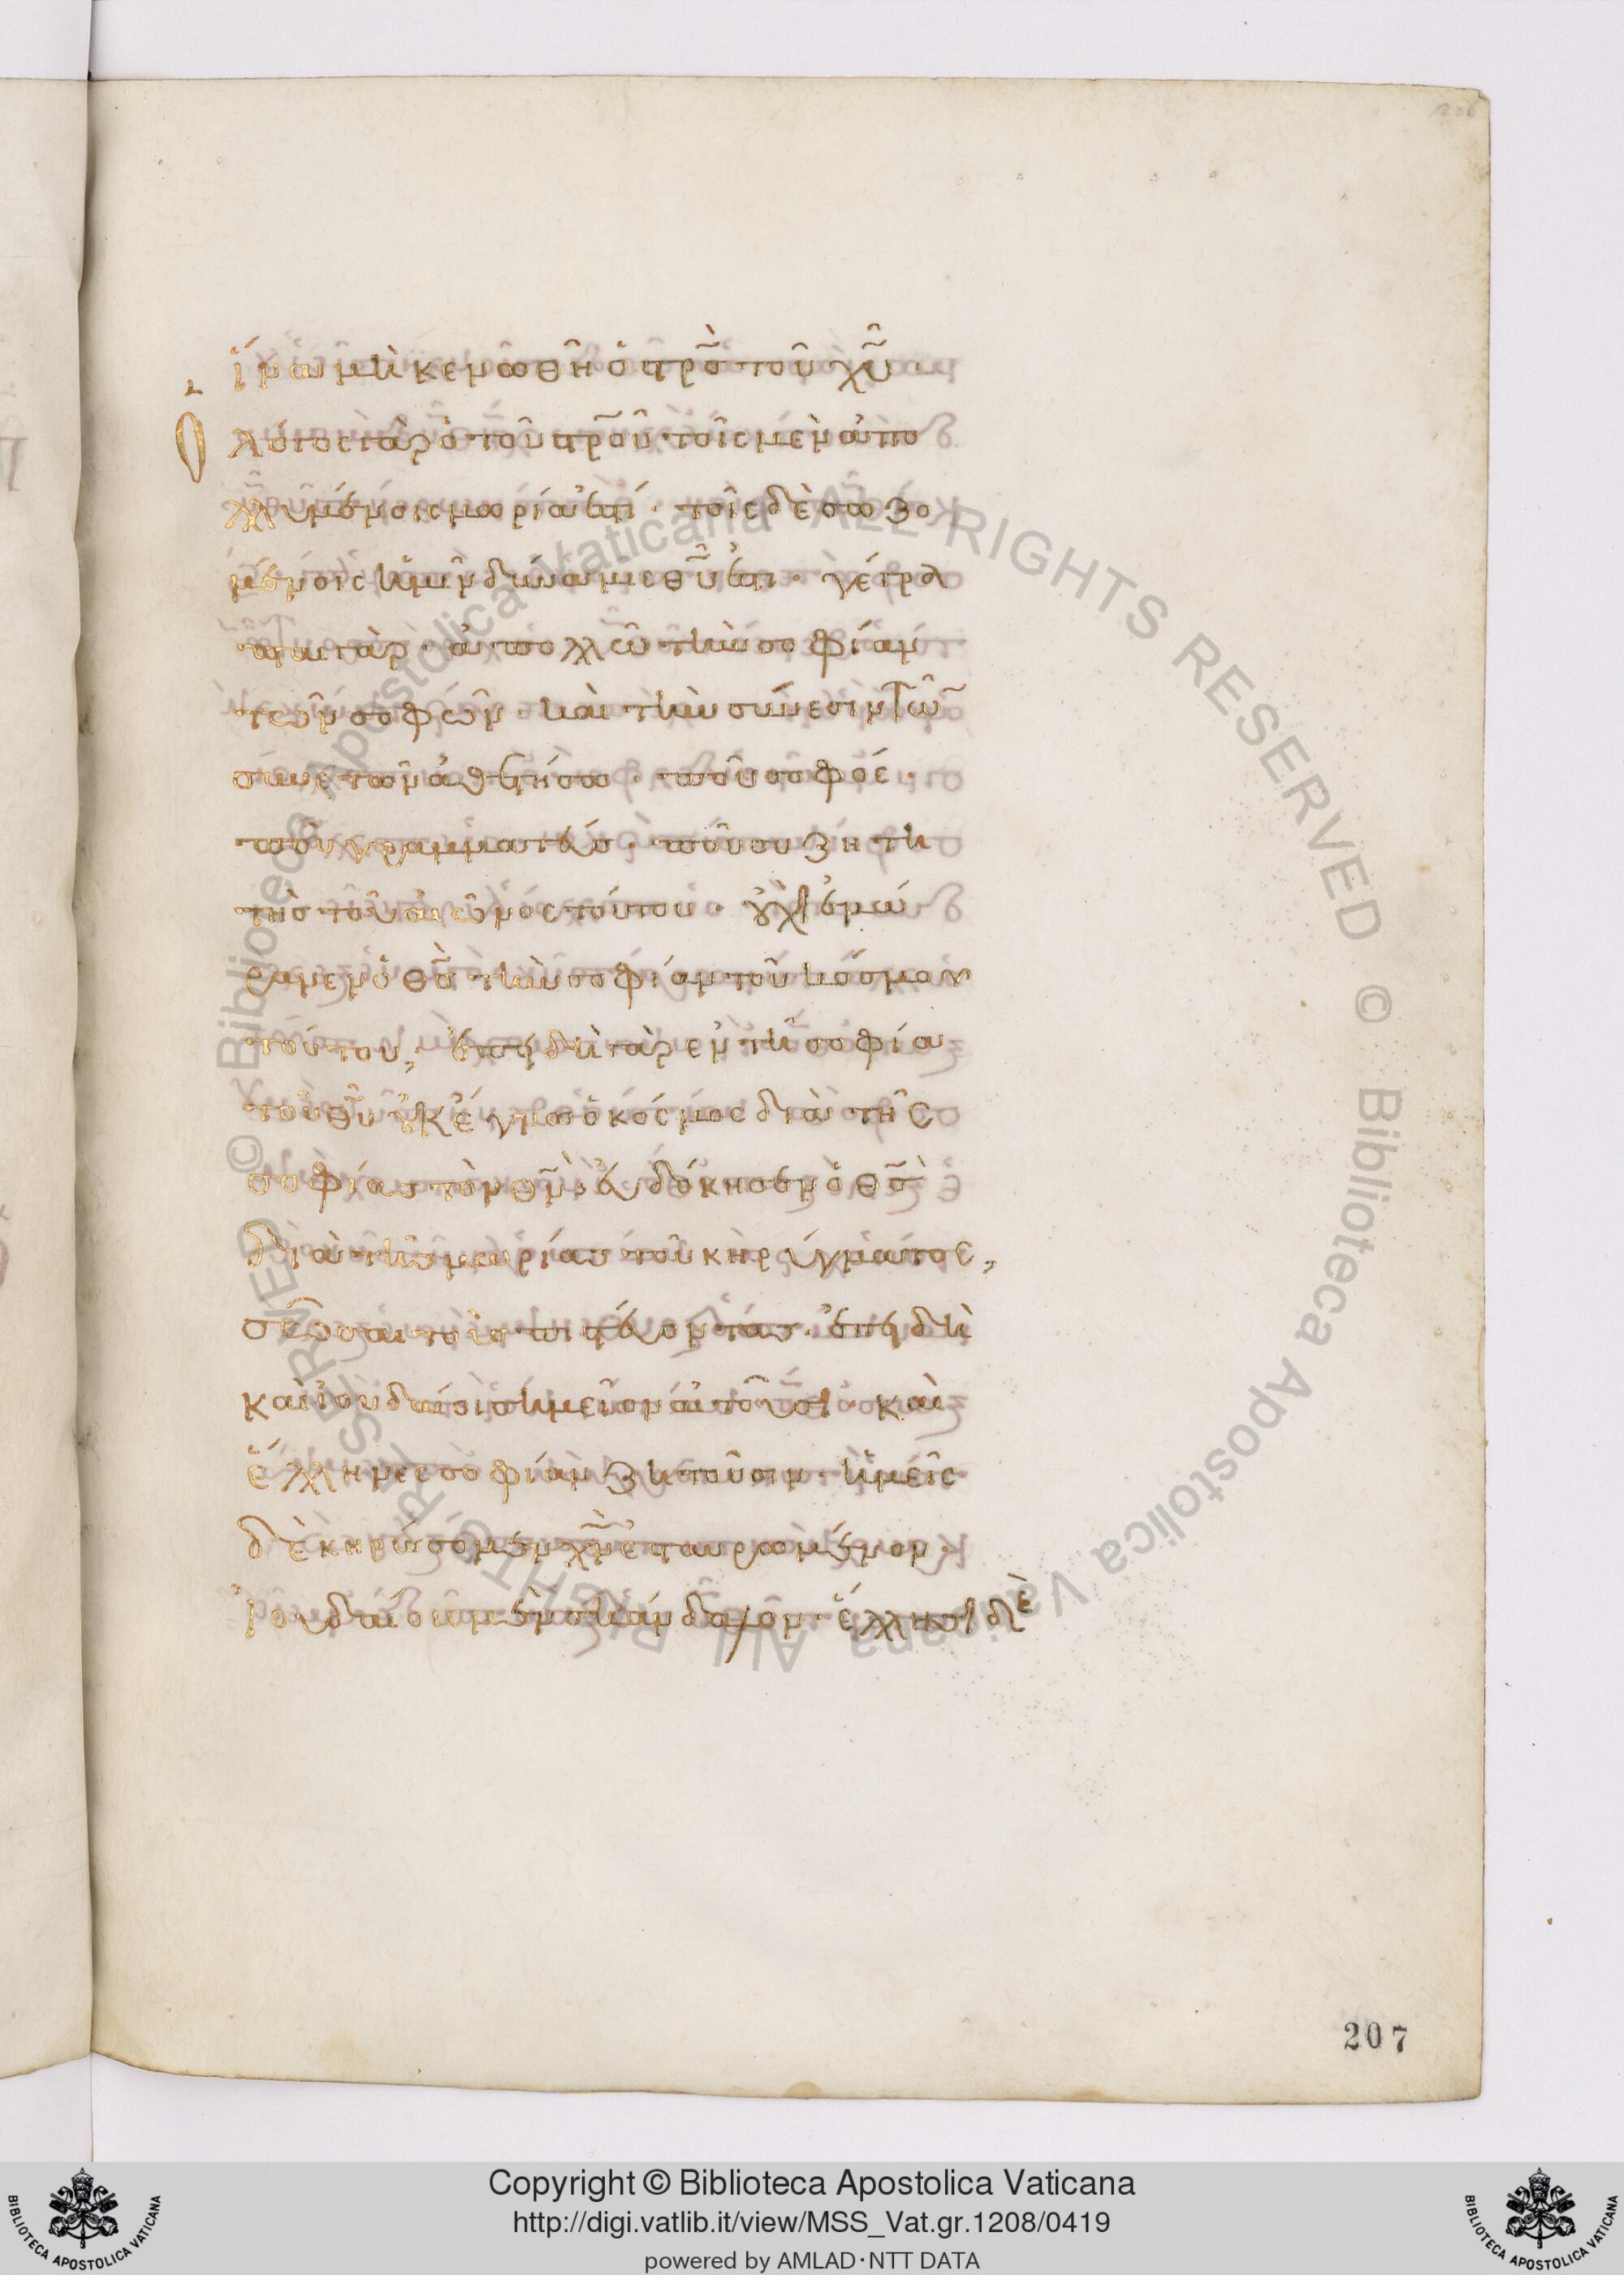 ἵνα μὴ κενωθῆ ὁ σ̅ρ̅ο̅ς̅ τοῦ χ̅υ̅
Ὁ λόγος γὰρ ὁ τοῦ σ̅ρ̅ο̅ῦ̅ τοῖς μὲν ἀπο
λλυμένοις μωρία ἐστί· τοῖς δὲ σωζο
μένοις ἡμῖν δύναμις θ̅υ̅ ἐστι· γέγρα
πται γάρ· ἀπολλῶ τὴν σοφίαν
τῶν σοφῶν· καὶ τὴν σύνεσιν τῶ̅
συνετῶν ἀθετήσω· ποῦ σοφός·
ποῦ γραμματεύς· ποῦ συζητη
τὴς τοῦ αἰῶνος τούτου· οὐχὶ ἐμώ
ρανεν ὁ θ̅ς̅ τὴν σοφίαν τοῦ κόσμου
τούτου, ἐπειδὴ γὰρ ἐν τῆ σοφία
τοῦ θ̅υ̅ οὐκ ἔγνω ὁ κόσμος διὰ τῆς
σοφίας τὸν θ̅ν̅· εὐδόκησεν ὁ θ̅ς̅
διὰ τῆς μωρίας τοῦ κηρύγματος,
σῶσαι τοὺς πιστεύοντας· ἐπειδὴ
καὶ ἰουδαῖοι σημεῖον αἰτοῦσι· καὶ
ἕλληνες σοφίαν ζητοῦσιν· ἡμεῖς
δὲ κηρύσομεν χ̅ν̅ ἐσταυρωμένον·
ἰουδαίοις μὲν σκάνδαλον· ἕλλησι δὲ
207
Copyright © Biblioteca Apostolica Vaticana
http://digi.vatlib.it/view/MSS_Vat.gr.1208/0419
powered by AMLAD·NTT DATA
BIBLIOTECA APOSTOLICA VATICANA
BIBLIOTECA APOSTOLICA VATICANA
© Biblioteca Apostolica Vaticana ALL RIGHTS RESERVED
© Biblioteca Apostolica Vaticana ALL RIGHTS RESERVED